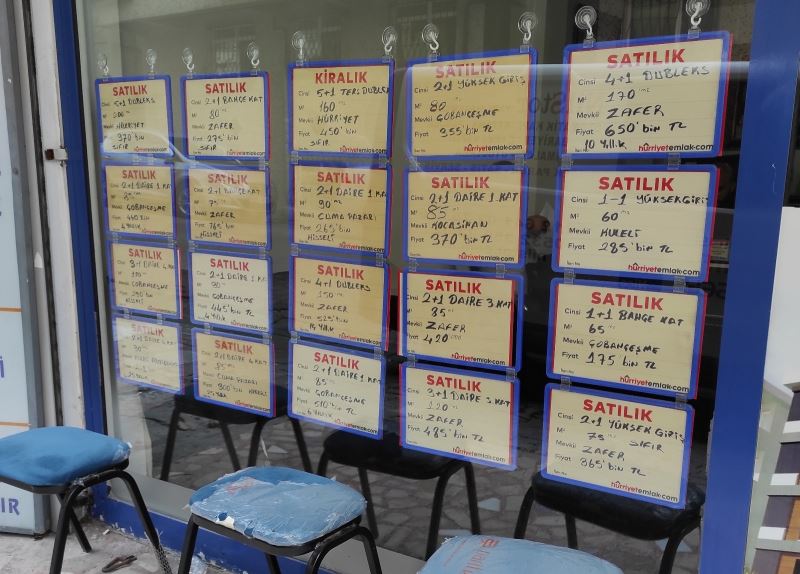 SATILIK
Cinsi 5+1 DUBLEKS
M² 200
Mevkii HÜRRİYET
Fiyat 970 bin
SIFIR
hürriyetemlak.com
SATILIK
Cinsi 2+1 BAHÇE KAT
M² 80
Mevkii ZAFER
Fiyat 275 bin TL
SIFIR
hürriyetemlak.com
KİRALIK
Cinsi 5+1 TERS DUBLEX
M² 160
Mevkii HÜRRİYET
Fiyat 450 bin TL
hürriyetemlak.com
SATILIK
Cinsi 2+1 YÜKSEK GİRİŞ
M² 80
Mevkii ÇOBANÇEŞME
Fiyat 355 bin TL
hürriyetemlak.com
SATILIK
Cinsi 4+1 DUBLEKS
M² 170
Mevkii ZAFER
Fiyat 650 bin TL
10 YILLIK
hürriyetemlak.com
SATILIK
Cinsi 2+1 DAİRE 1.KAT
M²
Mevkii ÇOBANÇEŞME
Fiyat 460 bin
hürriyetemlak.com
SATILIK
Cinsi 2+1 BAHÇE KAT
M² 75
Mevkii ZAFER
Fiyat bin TL
HİSSELİ
hürriyetemlak.com
SATILIK
Cinsi 2+1 DAİRE 1.KAT
M² 90
Mevkii CUMA PAZARI
Fiyat 265 bin TL
HİSSELİ
hürriyetemlak.com
SATILIK
Cinsi 2+1 DAİRE 1.KAT
M² 85
Mevkii KOCASİNAN
Fiyat 370 bin TL
hürriyetemlak.com
SATILIK
Cinsi 1-1 YÜKSEKGİRİ
M² 60
Mevkii KULELİ
Fiyat 285 bin TL
hürriyetemlak.com
SATILIK
Cinsi 3+1 DAİRE 4.KAT
M²
Mevkii ÇOBANÇEŞME
Fiyat bin TL
hürriyetemlak.com
SATILIK
Cinsi 2+1 DAİRE 1.K
M² 90
Mevkii ÇOBANÇEŞME
Fiyat 445 bin TL
4 YILLIK
hürriyetemlak.com
SATILIK
Cinsi 4+1 DUBLEKS
M² 150
Mevkii ZAFER
Fiyat 525 bin TL
YILLIK
hürriyetemlak.com
SATILIK
Cinsi 2+1 DAİRE 3.KAT
M² 85
Mevkii ZAFER
Fiyat 420
hürriyetemlak.com
SATILIK
Cinsi 1+1 BAHÇE KAT
M² 65
Mevkii ÇOBANÇEŞME
Fiyat 175 bin TL
hürriyetemlak.com
SATILIK
Cinsi
M²
Mevkii
Fiyat
hürriyetemlak.com
SATILIK
Cinsi 2+1 DAİRE 4.KAT
M² 85
Mevkii CUMA PAZARI
Fiyat 300 bin
hürriyetemlak.com
SATILIK
Cinsi 2+1 DAİRE 1.KAT
M² 85
Mevkii ÇOBANÇEŞME
Fiyat 510 bin TL
YILLIK
hürriyetemlak.com
SATILIK
Cinsi 3+1 DAİRE 3.KAT
M² 120
Mevkii ZAFER
Fiyat 485 bin TL
hürriyetemlak.com
SATILIK
Cinsi 2+1 YÜKSEK GİRİŞ
M² 75 SIFIR
Mevkii ZAFER
Fiyat 365 bin TL
hürriyetemlak.com